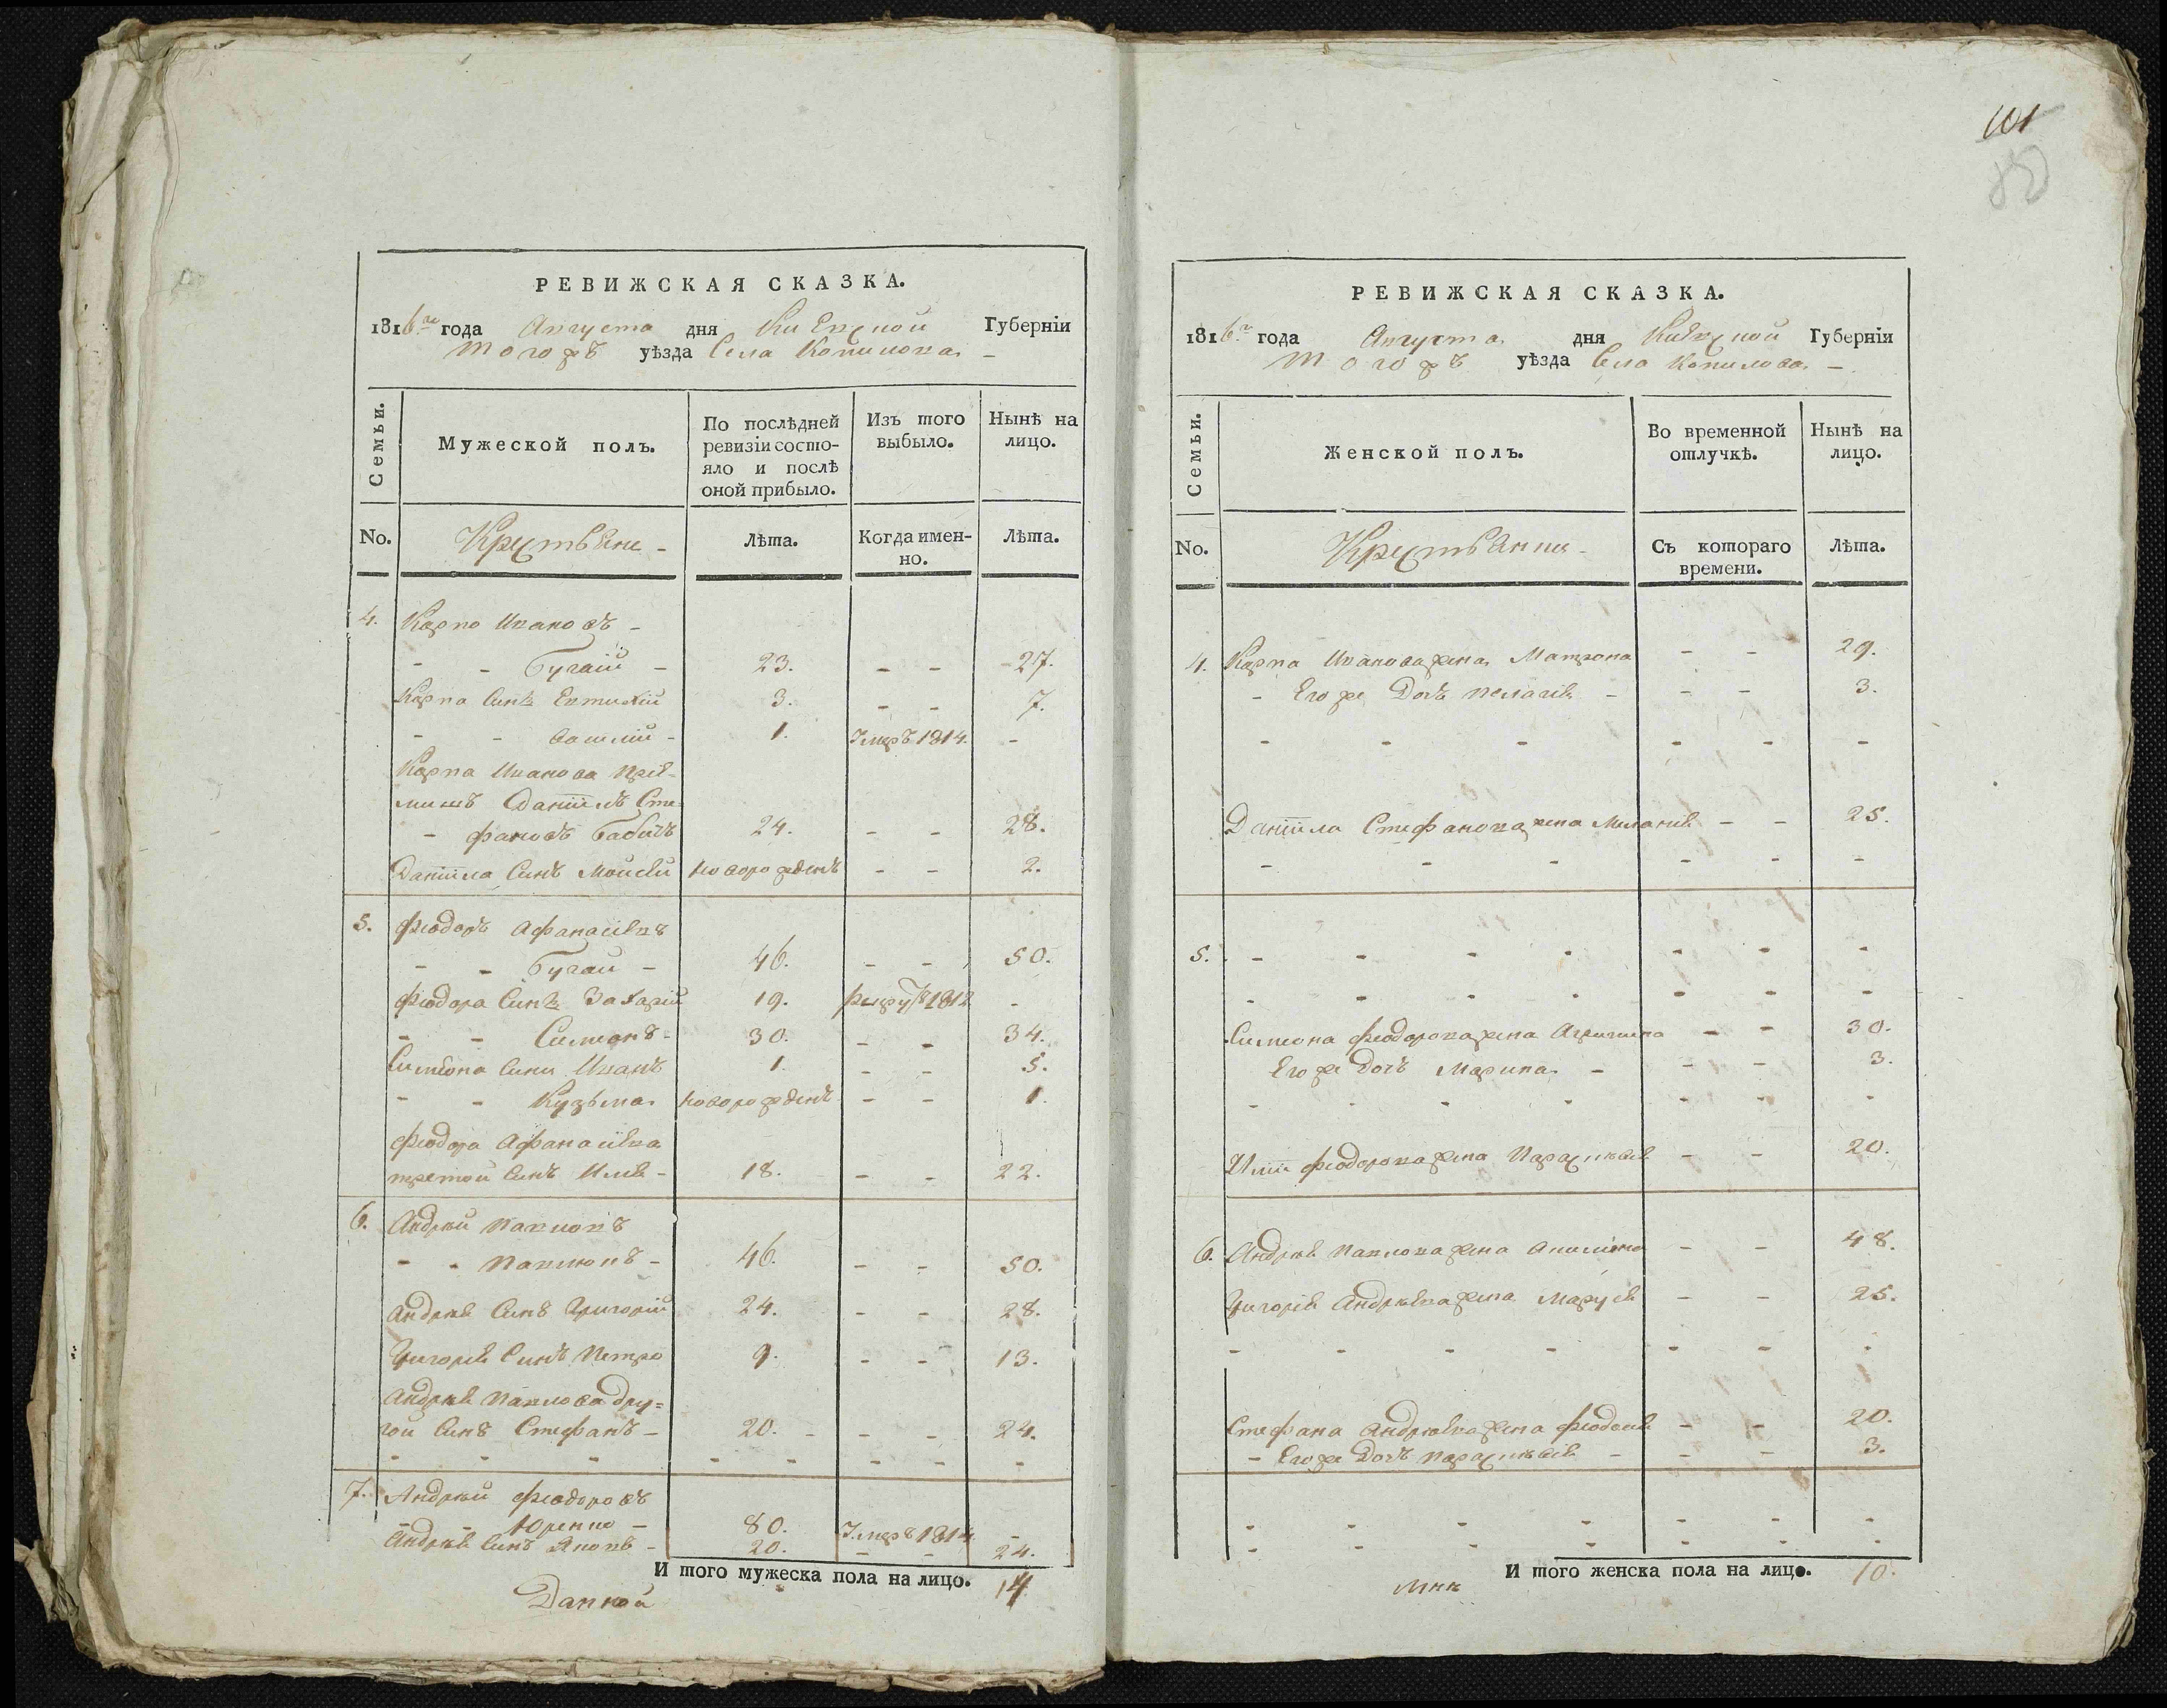 РЕВИЖСКАЯ СКАЗКА.
1816го года Августа дня Киевской Губернїи
тогожъ уѣзда Села Копилова –
Семьи.
Мужеской полъ.
По послѣдней ревизіи состояло и послѣ оной прибыло.
Изъ того выбыло.
Нынѣ на лицо.
No.
Крестьяне -
Лѣта.
Когда именно.
Лѣта.
4. Карпо Ивановъ -
- - Бугаій - 23. - - 27.
Карпа Синъ Евтихій 3. - - 7.
- - Василій - 1. Умеръ 1814. -
Карпа Иванова пріе-
мишъ Даніилъ Сте-
- фановъ Бабичъ 24. - - 28.
Даніила Синъ Мойсей новорожденъ - - 2.
5. Феодоръ Афанасіевъ
- - Бугай - 46. - - 50.
Феодора Синъ Захарій 19. рекрут 1812 -
- - Симеонъ - 30. - - 34.
Симеона Сини Иванъ 1. - - 5.
- - Кузьма новорожденъ - - 1.
Феодора Афанасіева
третой Синъ Илія - 18. - - 22.
6. Андрей Павловъ
- - Павлюкъ - 46. - - 50.
Андрея Синъ Григорій 24. - - 28.
Григорія Синъ Петро 9. - - 13.
Андрея Павлова дру=
гой Синъ Стефанъ - 20. - - - 24.
- - - - - - - -
7. Андрей Феодоровъ
- - Юренко - 80. Умеръ 1814 -
Андрея Синъ Яковъ - 20. - - 24.
И того мужеска пола на лицо. 14
101
РЕВИЖСКАЯ СКАЗКА.
1816го года Августа дня Киевской Губернїя
тогожъ уѣзда Села Копилова –
Семьи.
Женской полъ.
Во временной отлучкѣ.
Нынѣ на лицо.
No.
Крестьянки -
Съ котораго времени.
Лѣта.
4. Карпа Иванова жена Матрона - - 29.
- Его же Дочъ Пелагія - - - 3.
- - - - - -
Даніила Стефанова жена Меланія - - 25.
- - - - - -
5. - - - - - - -
- - - - - - -
Симеона Феодорова жена Агрипина - - 30.
Его же Дочъ Марина - - - 3.
- - - - - - -
Иліи Феодорова жена Параскевія - - 20.
6. Андрея Павлова жена Акилина - - 48.
Григорія Андреева жена Марія - - 25.
- - - - - - -
Стефана Андреева жена Феодосія - - 20.
- Его же Дочъ Параскевія - - - 3.
- - - - - - -
- - - - - - -
И того женска пола на лицо. 10.